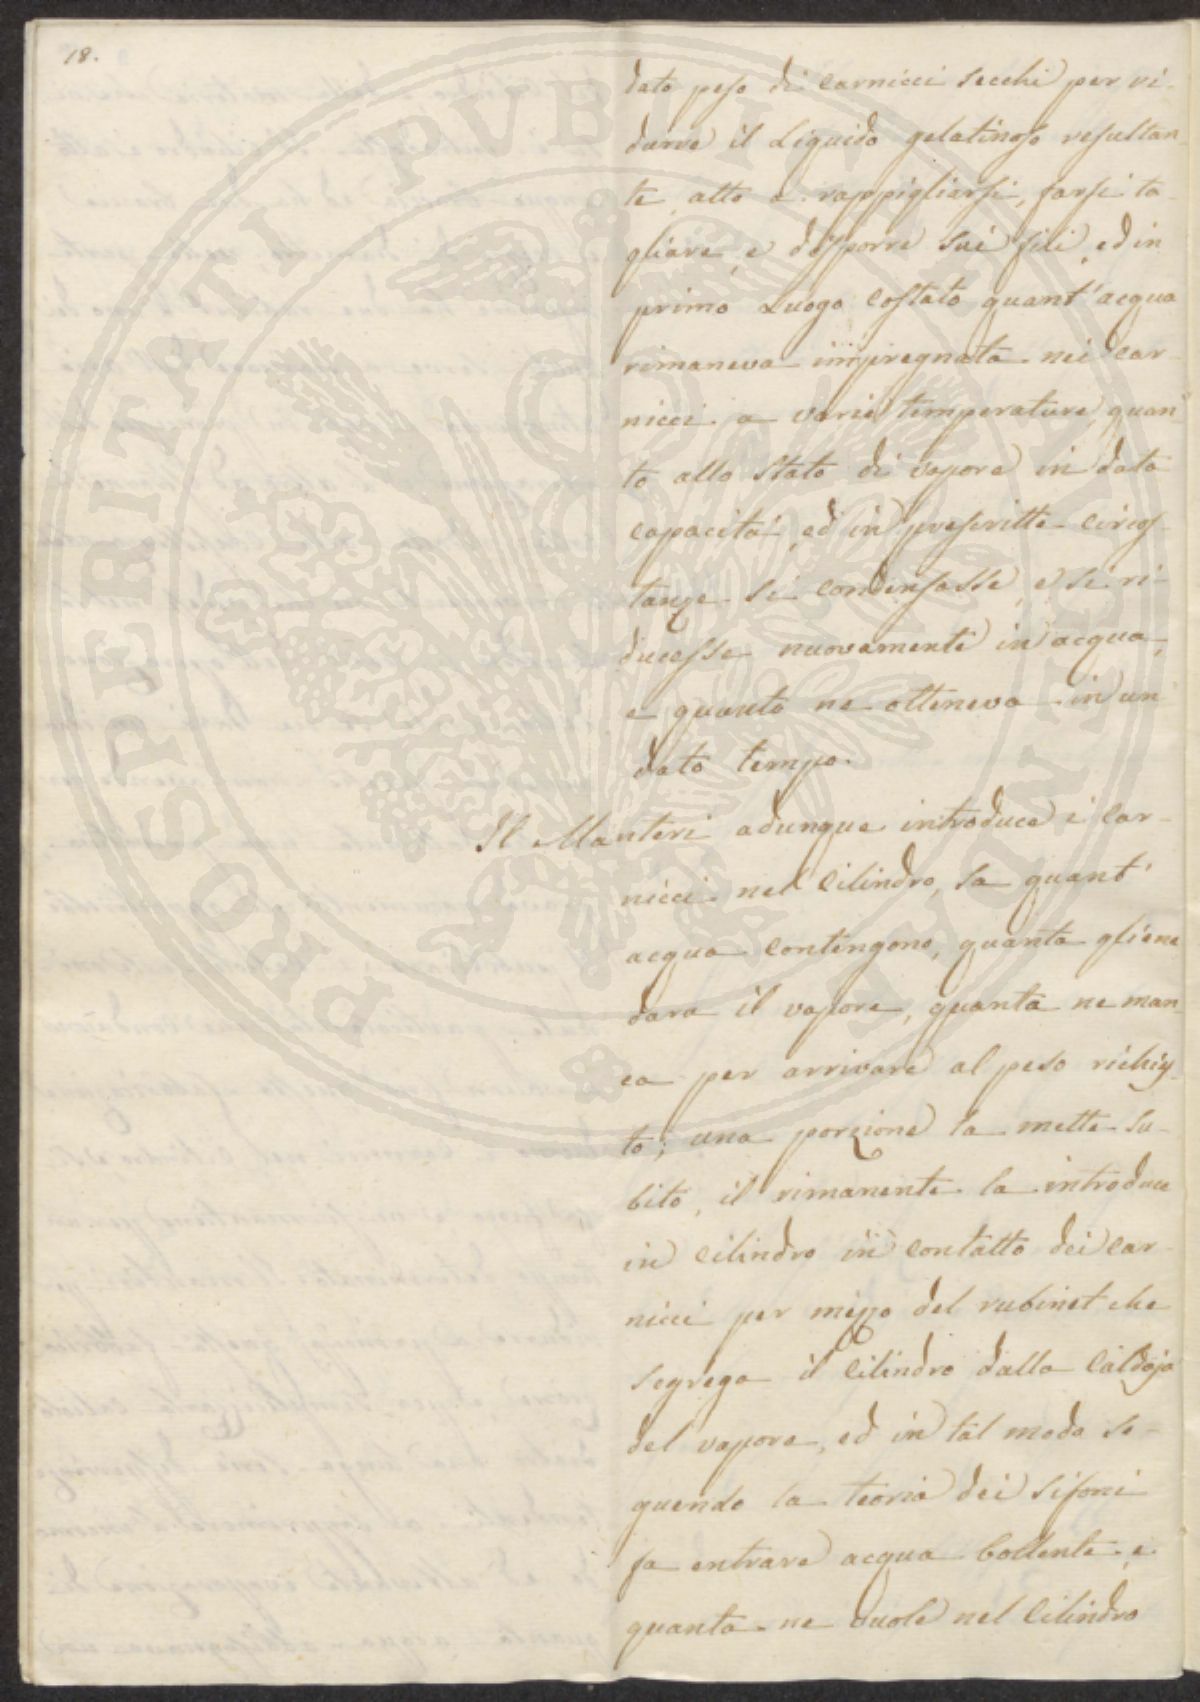 18.
dato peso di carnicci secchi per ri-
durre il Liquido gelatinoso resultan-
te, atto a rappigliarsi, farsi ta-
gliare, e disporre sui fili, ed in
primo Luogo costato quant'acqua
rimaneva impregnata nei car-
nicci a varie temperature, quan-
to allo stato di vapore in data
capacità, ed in prescritte circos-
tanze si condensasse, e se ri-
ducesse nuovamente in acqua,
e quanta ne otteneva in un
dato tempo.
Il Manteri adunque introduce i car-
nicci nel Cilindro, sa quant'
acqua contengono, quanta gliene
dara il vapore, quanta ne man-
ca per arrivare al peso richies-
to; una porzione la mette su-
bito, il rimanente la introduce
in Cilindro in contatto dei car-
nicci per mezzo del rubinet che
segrega il Cilindro dalla Caldaja
del vapore, ed in tal modo se-
guendo la teoria dei sifoni
fa entrare acqua bollente e
quanta ne vuole nel Cilindro
PROSPERITATI PVBLICAE